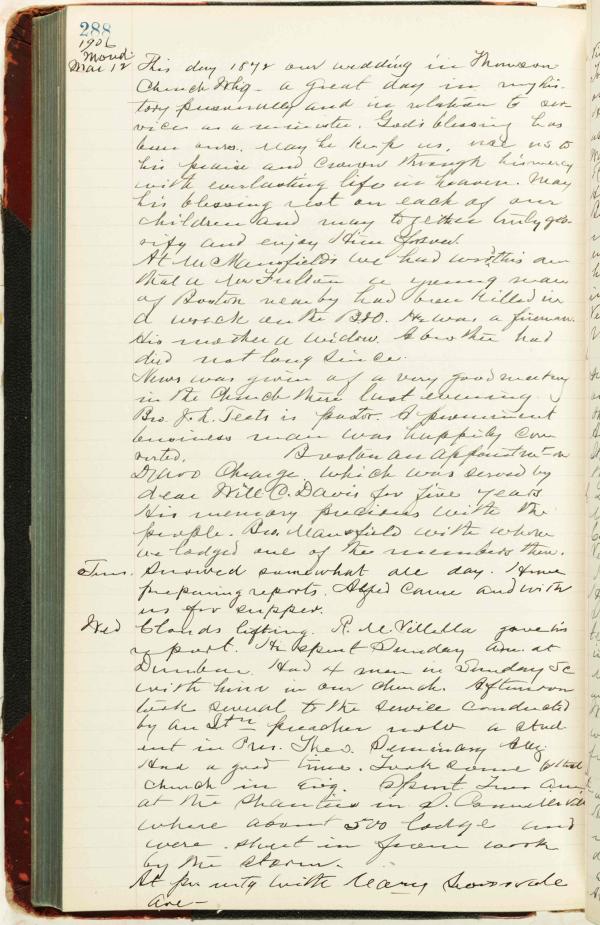 288
1906
Mond.
Mar 12 This day 1872 our wedding in Thomson
Church Whg - a great day in my his-
tory personally and in relation to ser-
vice as a minister. God's blessing has
been ours. May he keep us, use us to
his praise and crown through his mercy
with everlasting life in heaven. May
his blessing rest on each of our
children and may together truly glo-
rify and enjoy Him forever.
At Mr Mansfields we had word this am
that a Mr Fulton a young man
of Boston nearby had been killed in
a wreck on the B&O. He was a fireman.
His mother a widow. A brother had
died not long since.
News was given of a very good meeting
in the Church there last evening.
Bro. J. L. Teets is pastor. A prominent
business man was happily con-
verted. Boston an appointmt on
Charge which was served by
dear Will C. Davis for five years
His memory precious with the
people. Bro. Mansfield with whom
we lodged one of the members there.
Tues. Snowed somewhat all day. Home
preparing reports. Alfred came and with
us for supper.
Wed Clouds lifting. R. M. Villella gave his
report. He spent Sunday am. at
Dunbar. Had 4 men in Sunday Sc
with him in our church. Afternoon
took several to the service conducted
by an Itn preacher now a stud-
ent in Pres. Theo. Seminary Alleg
Had a good time. Took some to that
church in Evg. Spent Tues Am
at the Shanties in S. Connellsville
where about 500 lodge and
were shut in from work
by the storm.
At with Mary Swissvale
Ave -